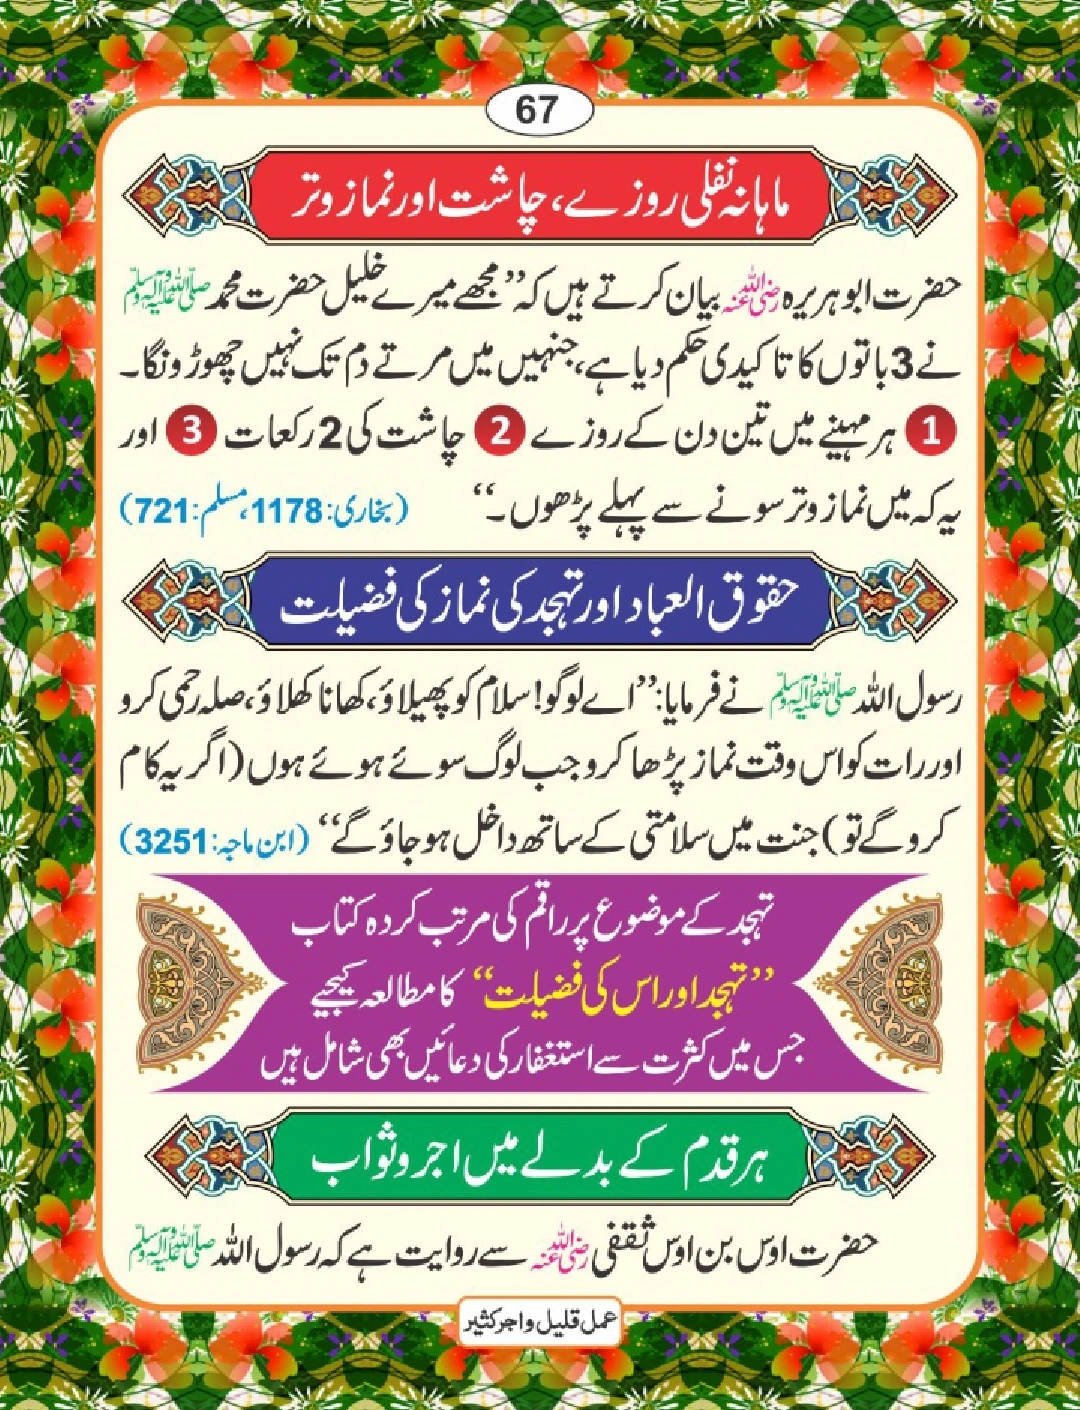 67
ماہانہ نفلی روزے، چاشت اور نماز وتر
حضرت ابوہریرہ رضی اللہ عنہ بیان کرتے ہیں کہ ”مجھے میرے خلیل حضرت محمد صلی اللہ علیہ وسلم
نے 3 باتوں کا تاکیدی حکم دیا ہے، جنہیں میں مرتے دم تک نہیں چھوڑونگا۔
1 ہر مہینے میں تین دن کے روزے 2 چاشت کی 2 رکعات 3 اور
یہ کہ میں نماز وتر سونے سے پہلے پڑھوں۔“ (بخاری: 1178، مسلم: 721)
حقوق العباد اور تہجد کی نماز کی فضیلت
رسول اللہ صلی اللہ علیہ وسلم نے فرمایا: ”اے لوگو! سلام کو پھیلاؤ، کھانا کھلاؤ، صلہ رحمی کرو
اور رات کو اس وقت نماز پڑھا کرو جب لوگ سوئے ہوئے ہوں (اگر یہ کام
کرو گے تو) جنت میں سلامتی کے ساتھ داخل ہو جاؤ گے“ (ابن ماجہ: 3251)
تہجد کے موضوع پر راقم کی مرتب کردہ کتاب
”تہجد اور اس کی فضیلت“ کا مطالعہ کیجیے
جس میں کثرت سے استغفار کی دعائیں بھی شامل ہیں
ہر قدم کے بدلے میں اجر و ثواب
حضرت اوس بن اوس ثقفی رضی اللہ عنہ سے روایت ہے کہ رسول اللہ صلی اللہ علیہ وسلم
عمل قلیل و اجر کثیر